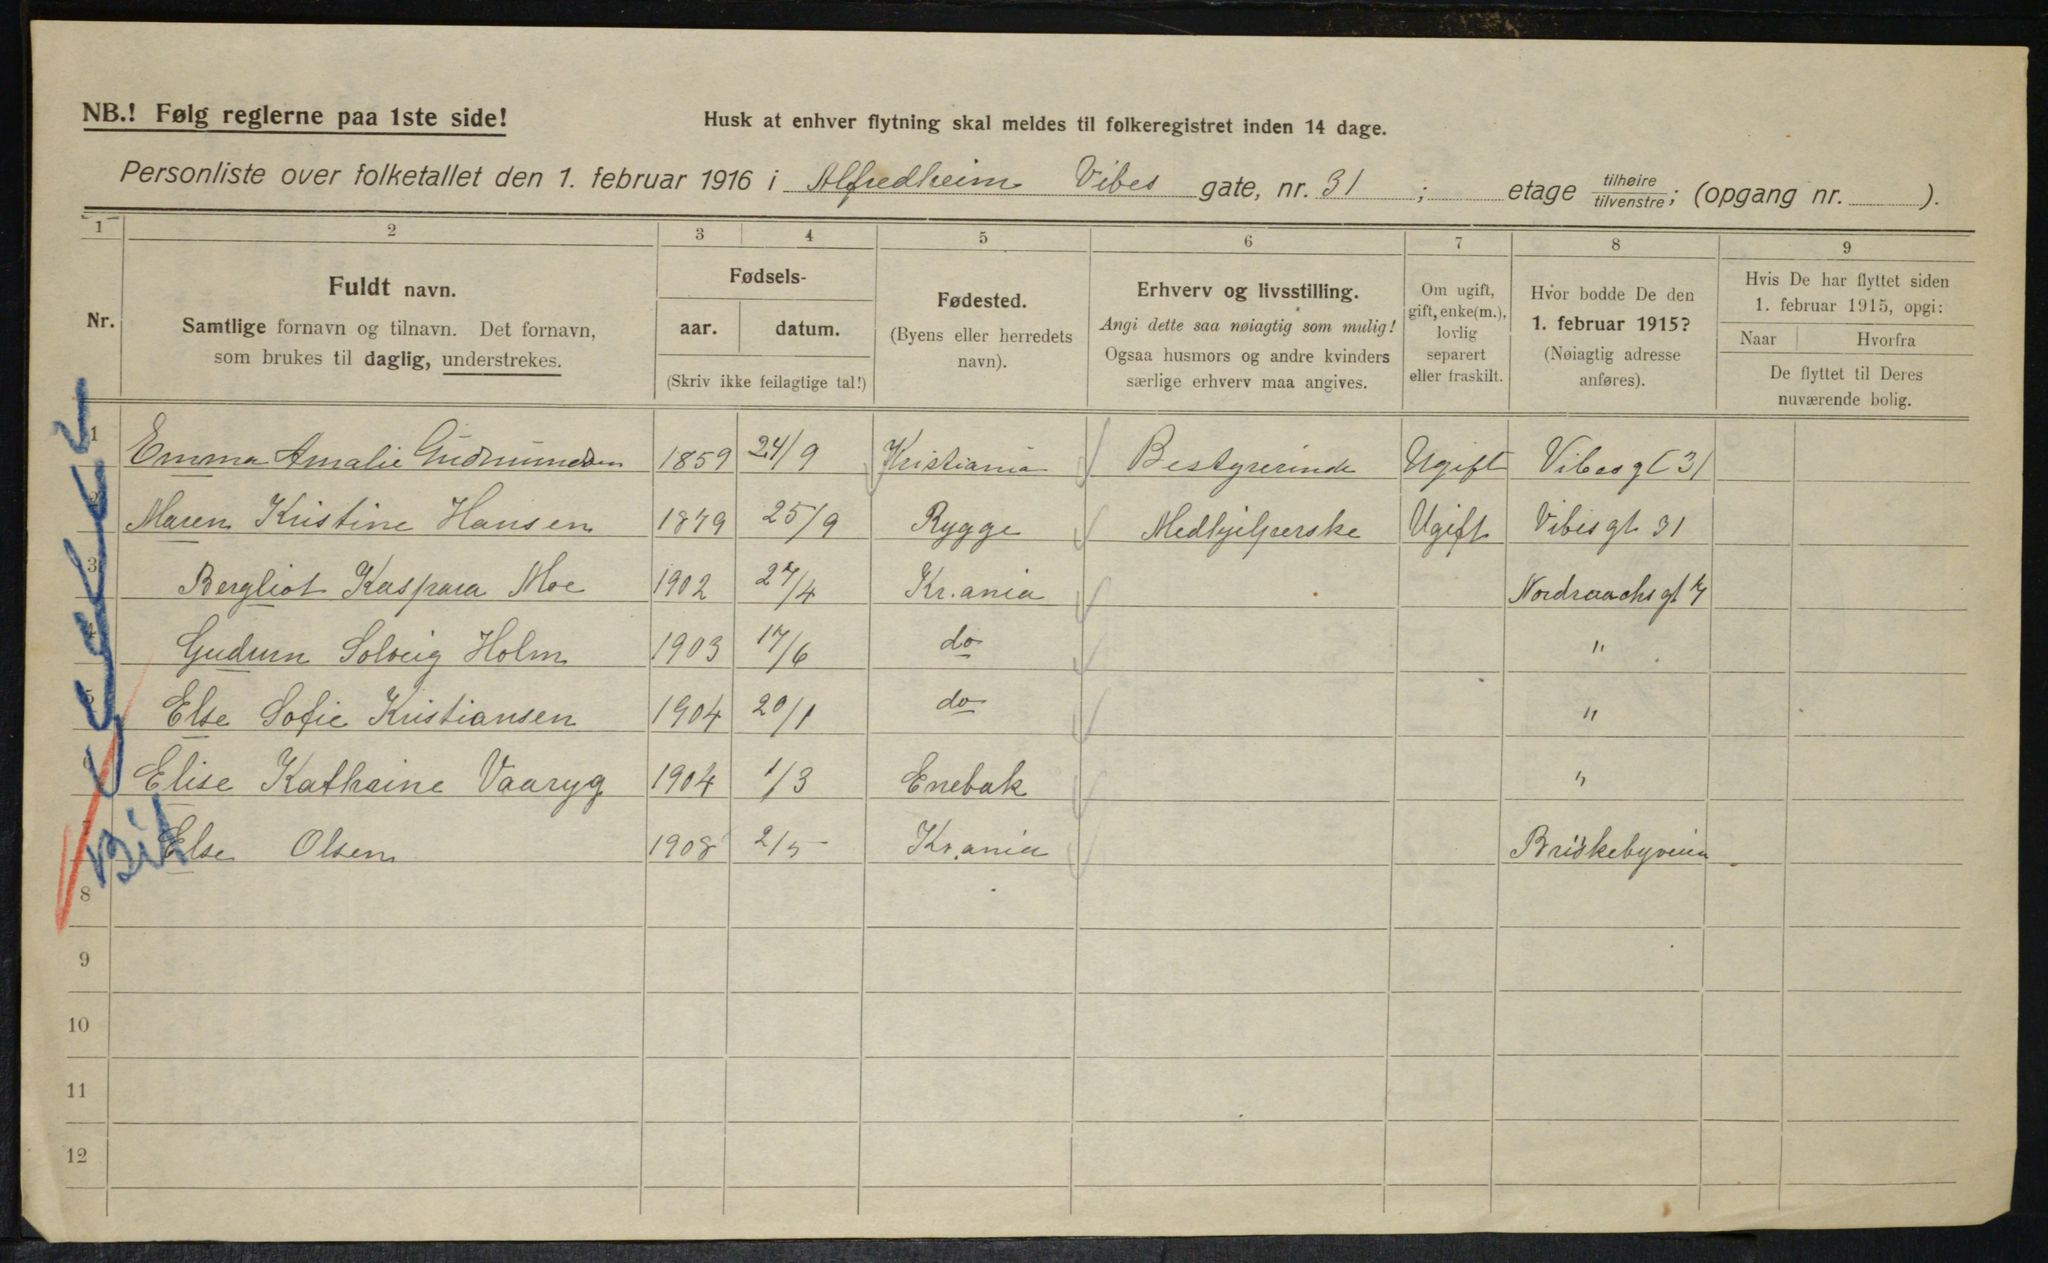 NB.! Følg reglerne paa 1ste side!
Husk at enhver flytning skal meldes til folkeregistret inden 14 dage.
Personliste over folketallet den 1. februar 1916 i Alfredheim Vibes gate, nr. 31 ; etage tilhøire/tilvenstre; (opgang nr. ).
1 2 3 4 5 6 7 8 9
Nr.
Fuldt navn.
Samtlige fornavn og tilnavn. Det fornavn,
som brukes til daglig, understrekes.
Fødsels-
aar. datum.
(Skriv ikke feilagtige tal!)
Fødested.
(Byens eller herredets
navn).
Erhverv og livsstilling.
Angi dette saa nøiagtig som mulig!
Ogsaa husmors og andre kvinders
særlige erhverv maa angives.
Om ugift,
gift, enke(m.),
lovlig
separert
eller fraskilt.
Hvor bodde De den
1. februar 1915?
(Nøiagtig adresse
anføres).
Hvis De har flyttet siden
1. februar 1915, opgi:
Naar Hvorfra
De flyttet til Deres
nuværende bolig.
1 Emma Amalie Gudmundsen 1859 24/9 Kristiania Bestyrerinde Ugift Vibesgt 31
2 Maren Kristine Hansen 1879 25/9 Rygge Medhjelperske Ugift Vibesgt 31
3 Bergliot Kaspara Moe 1902 27/4 Kr.ania Nordraachsgt 7
4 Gudrun Solveig Holm 1903 17/6 do "
5 Else Sofie Kristiansen 1904 20/1 do "
6 Elise Kathrine Vaaryg 1904 1/3 Enebak "
7 Else Olsen 1908 2/5 Kr.ania Briskebyveien
8
9
10
11
12